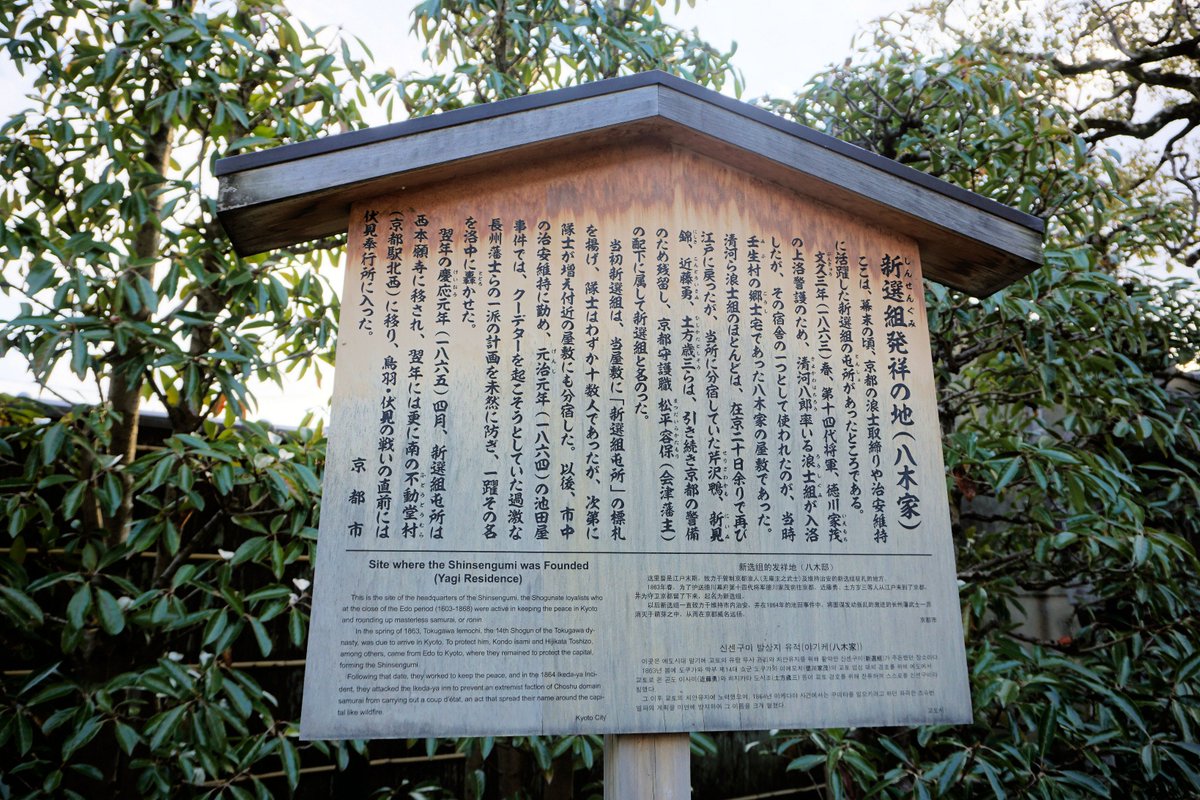 新選組発祥の地（八木家）
ここは、幕末の頃、京都の浪士取締りや治安維持
に活躍した新選組の屯所があったところである。
文久三年（一八六三）春、第十四代将軍、徳川家茂
の上洛警護のため、清河八郎率いる浪士組が入洛
したが、その宿舎の一つとして使われたのが、当時
壬生村の郷士宅であった八木家の屋敷であった。
清河ら浪士組のほとんどは、在京二十日余りで再び
江戸に戻ったが、当所に分宿していた芹沢鴨、新見
錦、近藤勇、土方歳三らは、引き続き京都の警備
のため残留し、京都守護職 松平容保（会津藩主）
の配下に属して新選組と名のった。
当初新選組は、当屋敷に「新選組屯所」の標札
を揚げ、隊士はわずか十数人であったが、次第に
隊士が増え付近の屋敷にも分宿した。以後、市中
の治安維持に勤め、元治元年（一八六四）の池田屋
事件では、クーデターを起こそうとしていた過激な
長州藩士らの一派の計画を未然に防ぎ、一躍その名
を洛中に轟かせた。
翌年の慶応元年（一八六五）四月、新選組屯所は
西本願寺に移され、翌年には更に南の不動堂村
（京都駅北西）に移り、鳥羽・伏見の戦いの直前には
伏見奉行所に入った。
京都市
Site where the Shinsengumi was Founded
(Yagi Residence)
This is the site of the headquarters of the Shinsengumi, the Shogunate loyalists who
at the close of the Edo period (1603-1868) were active in keeping the peace in Kyoto
and rounding up masterless samurai, or ronin
In the spring of 1863, Tokugawa Iemochi, the 14th Shogun of the Tokugawa dy-
nasty, was due to arrive in Kyoto. To protect him, Kondo Isami and Hijikata Toshizo,
among others, came from Edo to Kyoto, where they remained to protect the capital,
forming the Shinsengumi.
Following that date, they worked to keep the peace, and in the 1864 Ikeda-ya Inci-
dent, they attacked the Ikeda-ya inn to prevent an extremist faction of Choshu domain
samurai from carrying out a coup d'état, an act that spread their name around the capi-
tal like wildfire.
Kyoto City
新选组的发祥地（八木邸）
这里曾是江户末期，致力于管制京都浪人（无雇主之武士）及维持治安的新选组驻扎的地方。
1863年春，为了护送德川幕府第十四代将军德川家茂前往京都，近藤勇、土方岁三等人从江户来到了京都，
并为守卫京都留了下来，起名为新选组。
以后新选组一直致力于维持市内治安，并在1864年的池田事件中，将图谋发动叛乱的激进的长州藩武士一派
消灭于萌芽之中，从而在京都威名远扬。
京都市
신센구미 발상지 유적(야기케(八木家))